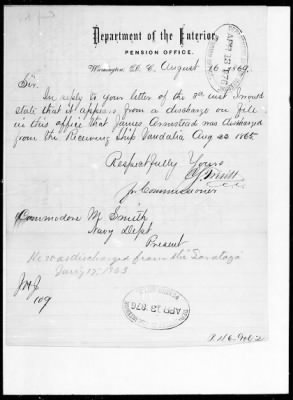 Department of the Interior,
PENSION OFFICE,
Washington, D. C., August 6 1869
Sir:
In reply to your letter of the 3d inst I would
state that it appears from a discharge on file
in this office that James Armstead was discharged
from the Receiving Ship Vandalia Aug 22 1865
Respectfully Yours
Commissioner
Commodore M. Smith
Navy Dept
Present
He was discharged from the "Saratoga"
Jan'y 17" 1863
109
APR 13 1976
APR 13 1976